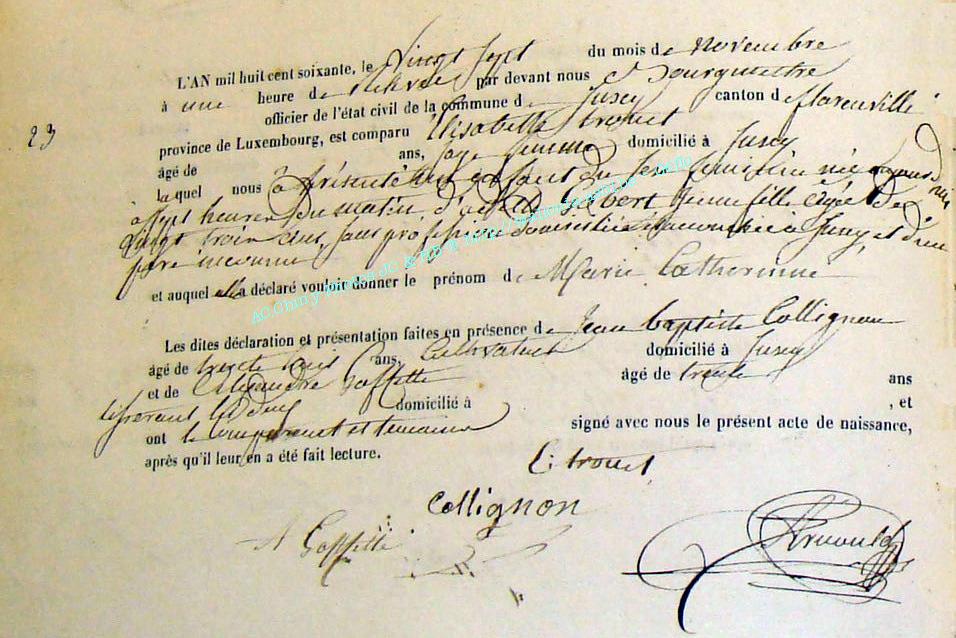 L'AN mil huit cent soixante, le vingt sept du mois de novembre
à une heure de relevée par devant nous Bourgmestre
officier de l'état civil de la commune de Jusey canton de florenville
23
province de Luxembourg, est comparu Elisabette trouet
âgé de ans, sage femme domicilié à Jusey
la quel nous a présenté un enfant du sexe féminin née aujourd'hui
à sept heures du matin, d' Gobert Jeune fille âgée de
vingt trois ans, sans profession domiciliée à Jusey et d'un
père inconnu
et auquel elle a déclaré vouloir donner le prénom de Marie Catherinne
Les dites déclaration et présentation faites en présence de Jean baptiste Collignon
âgé de trente trois ans, Cultivateur domicilié à Jusey
et de Alexandre Goffette âgé de trente ans
tisserant domicilié à , et
ont le comparant et temoins signé avec nous le présent acte de naissance,
après qu'il leur en a été fait lecture.
E trouet
Collignon
A Goffette
Arnould